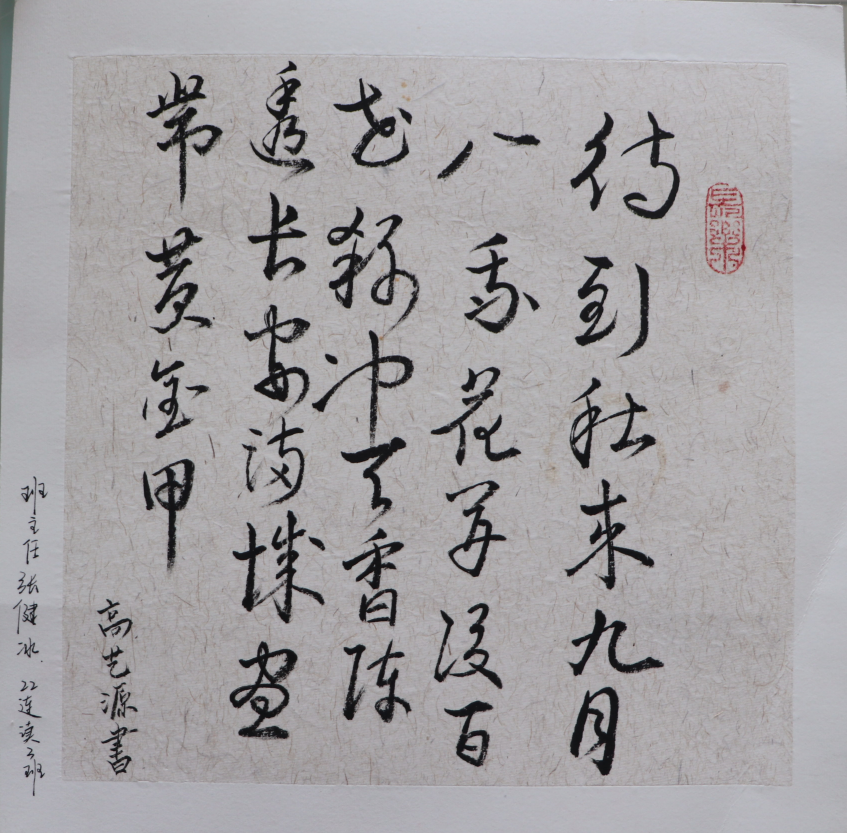 待到秋来九月
八我花开後百
花殺冲天香陣
透长安满城尽
带黄金甲
高艺源書
班主任张健冰 22连读班